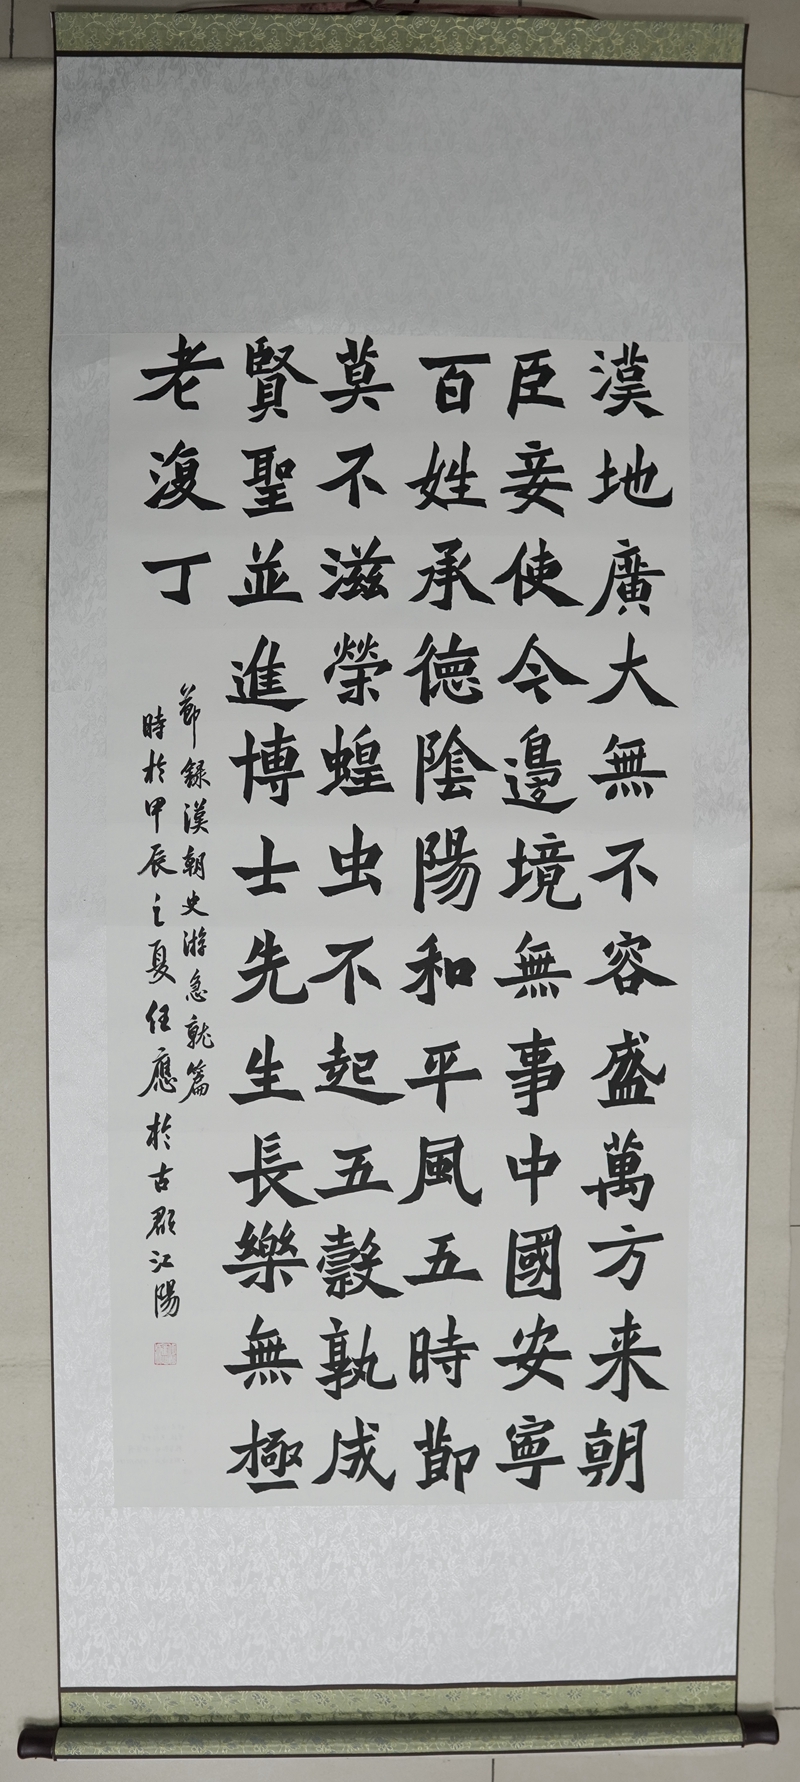 漢地廣大無不容盛萬方来朝
臣妾使令邊境無事中國安寧
百姓承德陰陽和平風五時節
莫不滋榮蝗虫不起五穀孰成
賢聖並進博士先生長樂無極
老復丁
節錄漢朝史游急就篇
時於甲辰之夏任應於古郡江陽